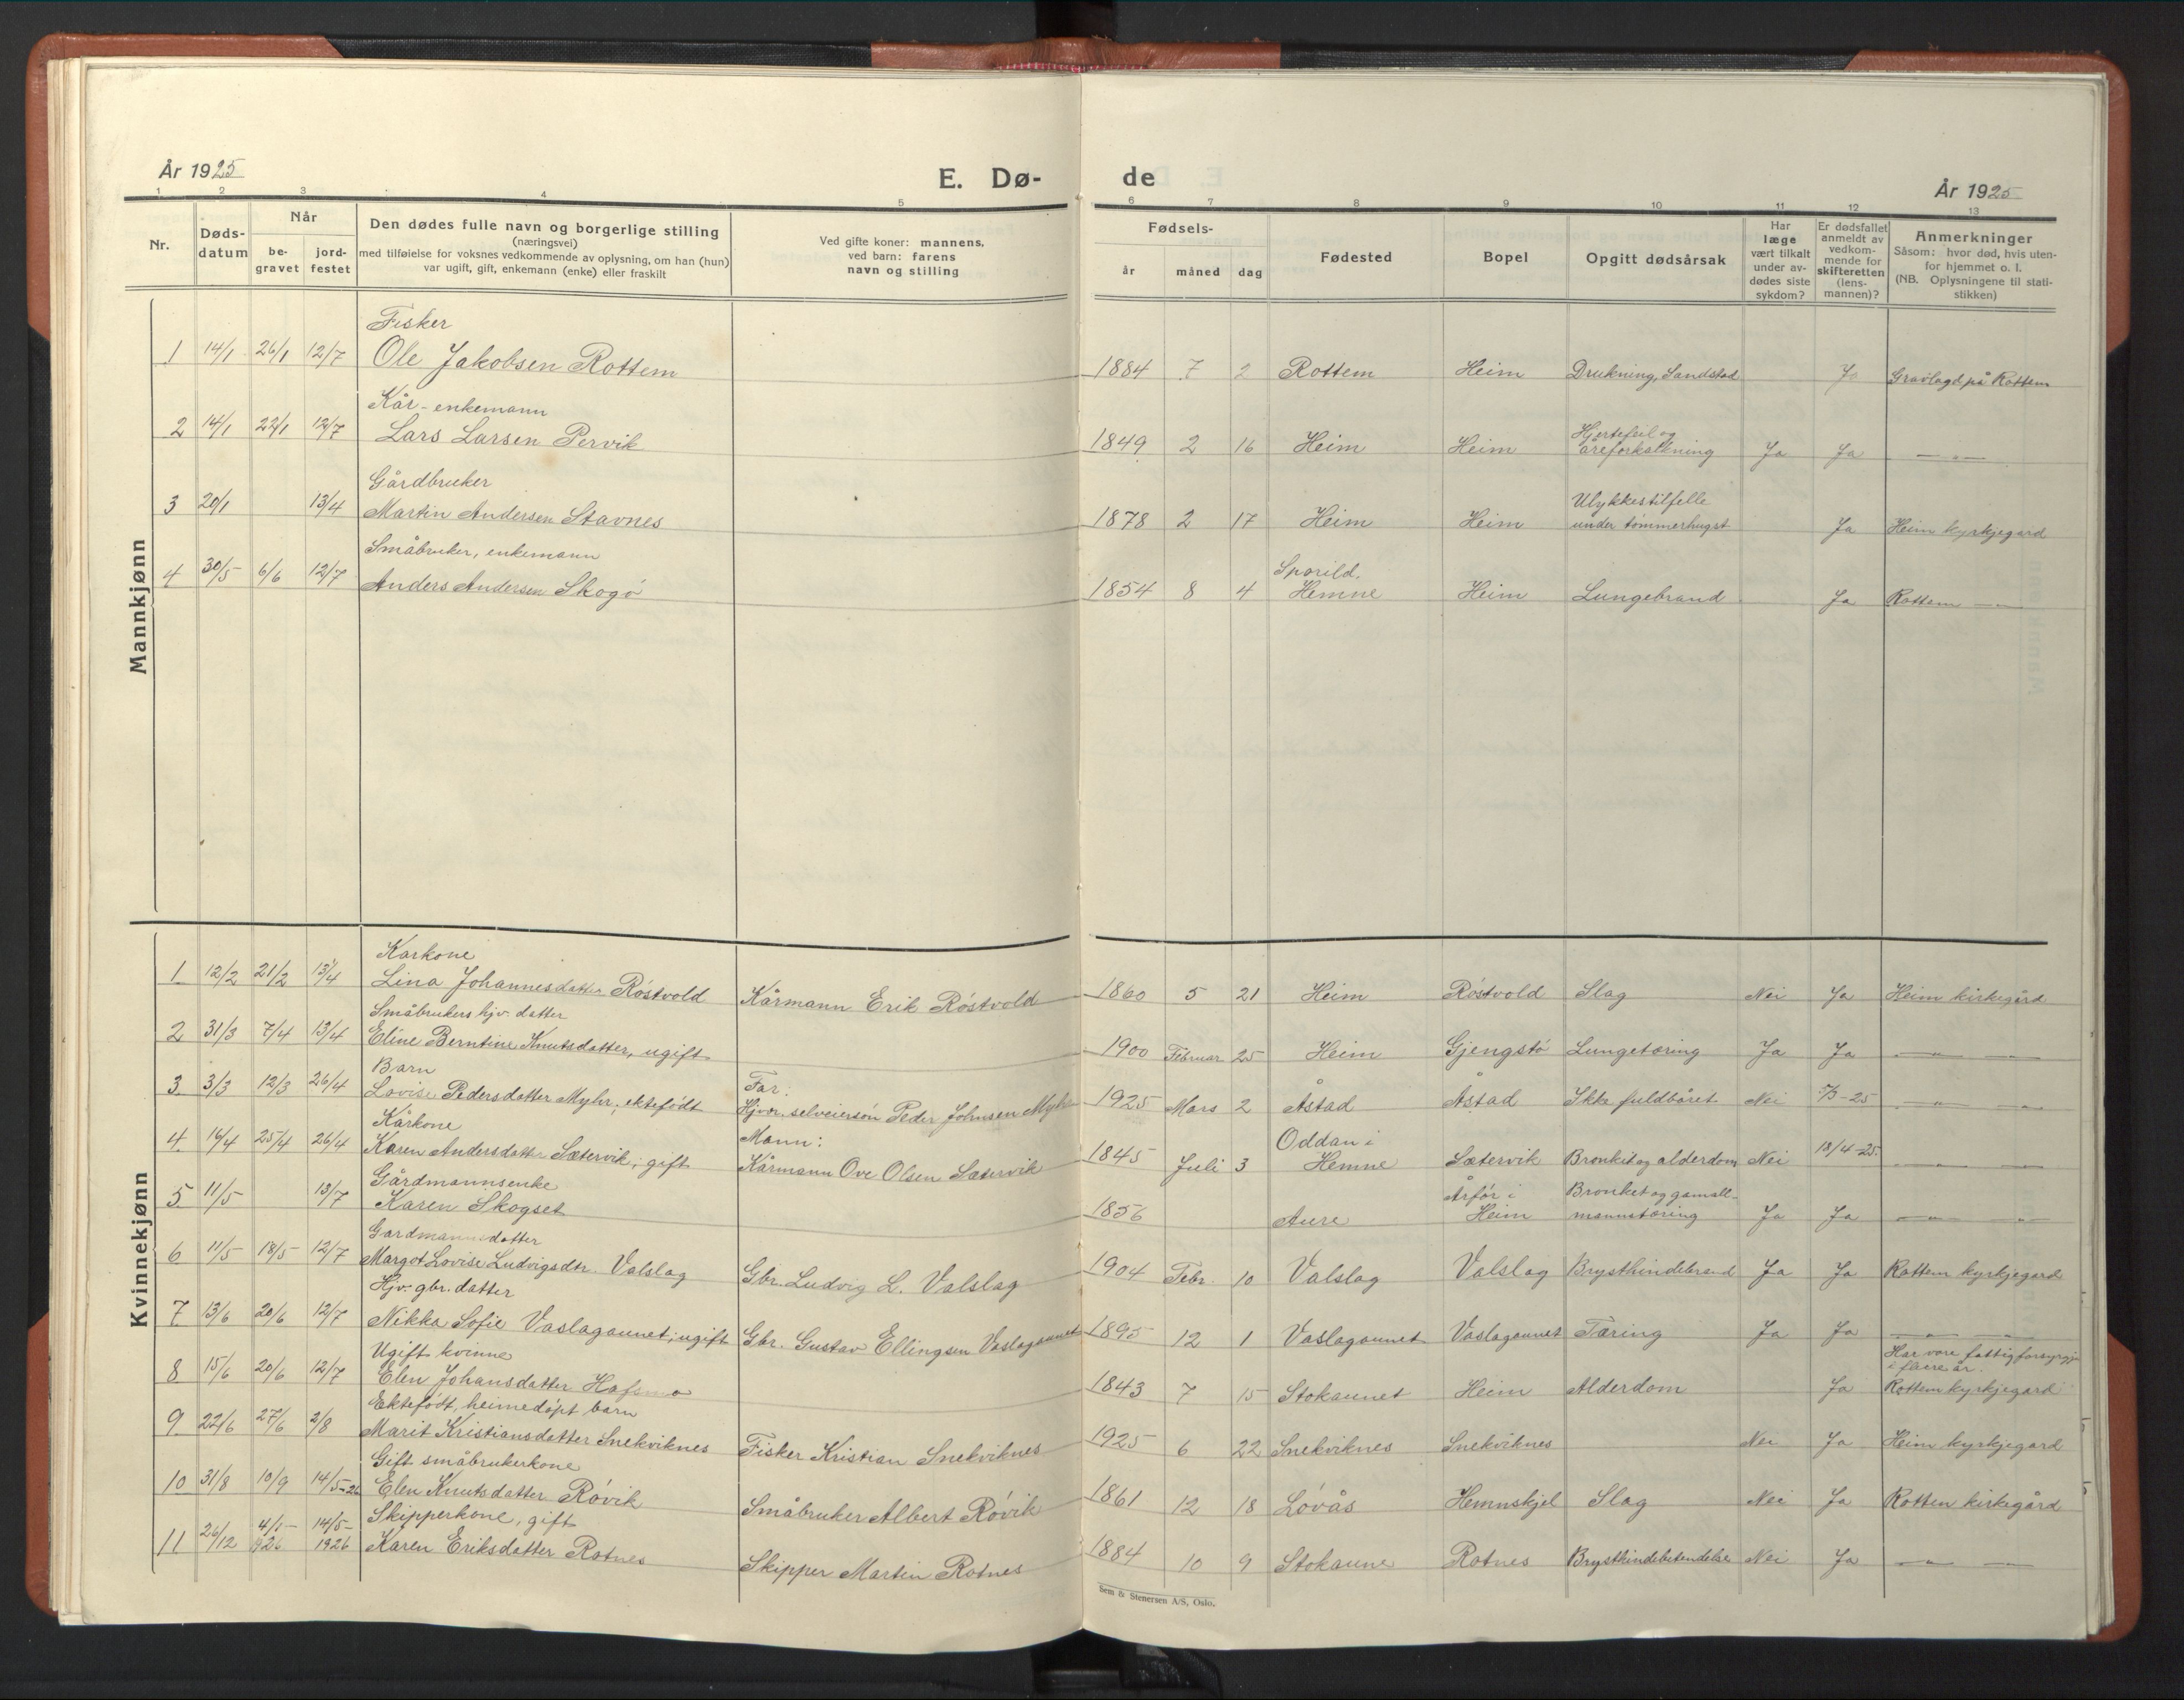 År 1925
E. Dø-
de
År 1925
1 2 3 4 5 6 7 8 9 10 11 12 13
Nr.
Døds-
datum
Når
be-
gravet
jord-
festet
Den dødes fulle navn og borgerlige stilling
(næringsvei)
med tilføielse for voksnes vedkommende av oplysning, om han (hun)
var ugift, gift, enkemann (enke) eller fraskilt
Ved gifte koner: mannens,
ved barn: farens
navn og stilling
Fødsels-
år måned dag
Fødested
Bopel
Opgitt dødsårsak
Har
læge
vært tilkalt
under av-
dødes siste
sykdom?
Er dødsfallet
anmeldt av
vedkom-
mende for
skifteretten
(lens-
mannen)?
Anmerkninger
Såsom: hvor død, hvis uten-
for hjemmet o. l.
(NB. Oplysningene til stati-
stikken)
Mannkjønn
Fisker
1 14/1 26/1 12/7 Ole Jakobsen Rottem 1884 7 2 Rottem Heim Drukning, Sandstad Ja Gravlagd på Rottem
Kår-enkemann
Hjertefeil og
2 14/1 22/1 12/7 Lars Larsen Pervik 1849 2 16 Heim Heim åreforkalkning Ja Ja — " —
Gårdbruker
Ulykkestilfelle
3 20/1 13/4 Martin Andersen Stavnes 1878 2 17 Heim Heim under tømmerhugst Ja Heim kyrkjegard
Småbruker, enkemann
Sporild.
4 30/5 6/6 12/7 Anders Andersen Skogø 1854 8 4 Hemne Heim Lungebrand Ja Rottem — " —
Kvinnekjønn
Karkone
1 12/2 21/2 13/4 Lina Johannesdatter Røstvold Kårmann Erik Røstvold 1860 5 21 Heim Røstvold Slag Nei Ja Heim kirkegård
Småbrukers hjv. datter
2 31/3 7/4 13/4 Eline Berntine Knutsdatter, ugift 1900 Februar 25 Heim Gjengstø Lungetæring Ja Ja — " — —
Barn
Far:
3 3/3 12/3 26/4 Lovise Pedersdatter Myhr, ektefødt Hjvr. selveiersøn Peder Johnsen Myhr 1925 Mars 2 Åstad Åstad Ikke fuldbåret Nei 5/3-25 — " — —
Kårkone
Mann:
Oddan i
4 16/4 25/4 26/4 Karen Andersdatter Sætervik, gift Kårmann Ove Olsen Sætervik 1845 Juli 3 Hemne Sætervik Bronkit og alderdom Nei 18/4-25. — " — —
Gårdmannsenke
Årfør i
Bronket og gamall-
5 11/5 13/7 Karen Skogset 1856 Aure Heim mannstæring Ja Ja — " — "
Gardmannsdatter
6 11/5 18/5 12/7 Margot Lovise Ludvigsdtr. Valslag Gbr. Ludvig L. Valslag 1904 Febr. 10 Valslag Valslag Brysthindebrand Ja Ja Rottem kyrkjegard
Hjv. gbr. datter
7 13/6 20/6 12/7 Nikka Sofie Vaslagaunet, ugift Gbr. Gustav Ellingsen Vaslagaunet 1895 12 1 Vaslagaunet Vaslagaunet Tæring Ja Ja — " — —
Ugift kvinne
Har vore fattigforsyrgja
i fleire år.
8 15/6 20/6 12/7 Elen Johansdatter Hafsmo 1843 7 15 Stokaunet Heim Alderdom Ja Rottem kyrkjegard
Ektefødt, heimedøpt barn
9 22/6 27/6 2/8 Marit Kristiansdatter Snekviknes Fisker Kristian Snekviknes 1925 6 22 Snekviknes Snekviknes Nei Ja Heim kyrkjegard
Gift småbrukerkone
10 31/8 10/9 14/5-26 Elen Knutsdatter Røvik Småbruker Albert Røvik 1861 12 18 Løvås Hemnskjel Slag Nei Ja Rotten kirkegård
Skipperkone, gift
11 26/12 4/1-1926 14/5-1926 Karen Eriksdatter Rotnes Skipper Martin Rotnes 1884 10 9 Stokaune Rotnes Brysthindebetendelse Nei Ja — " — —
Sem & Stenersen A/S, Oslo.